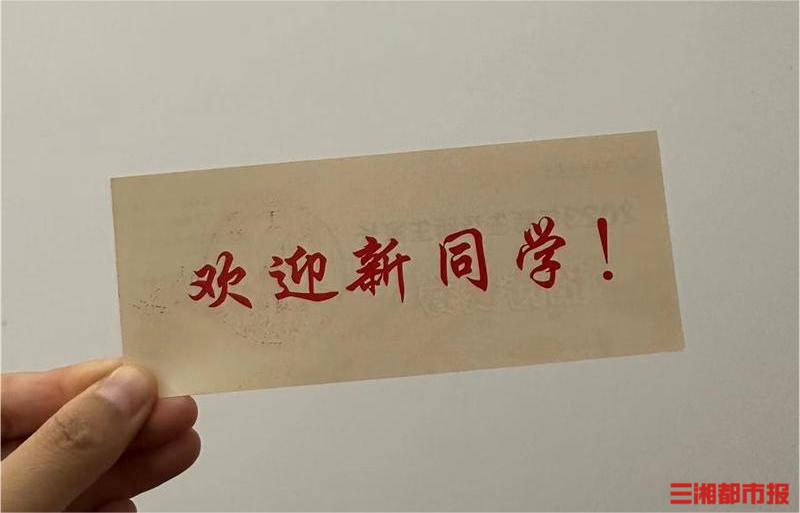 欢迎新同学！
三湘都市报